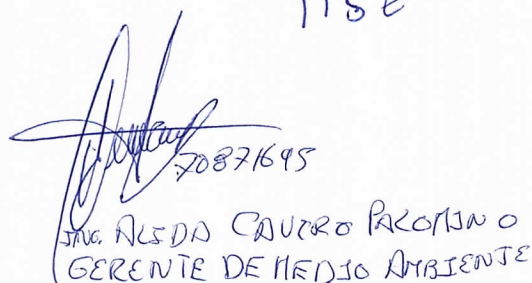 70871695
ING. ALIDA CAUTRO PALOMINO
GERENTE DE MEDIO AMBIENTE